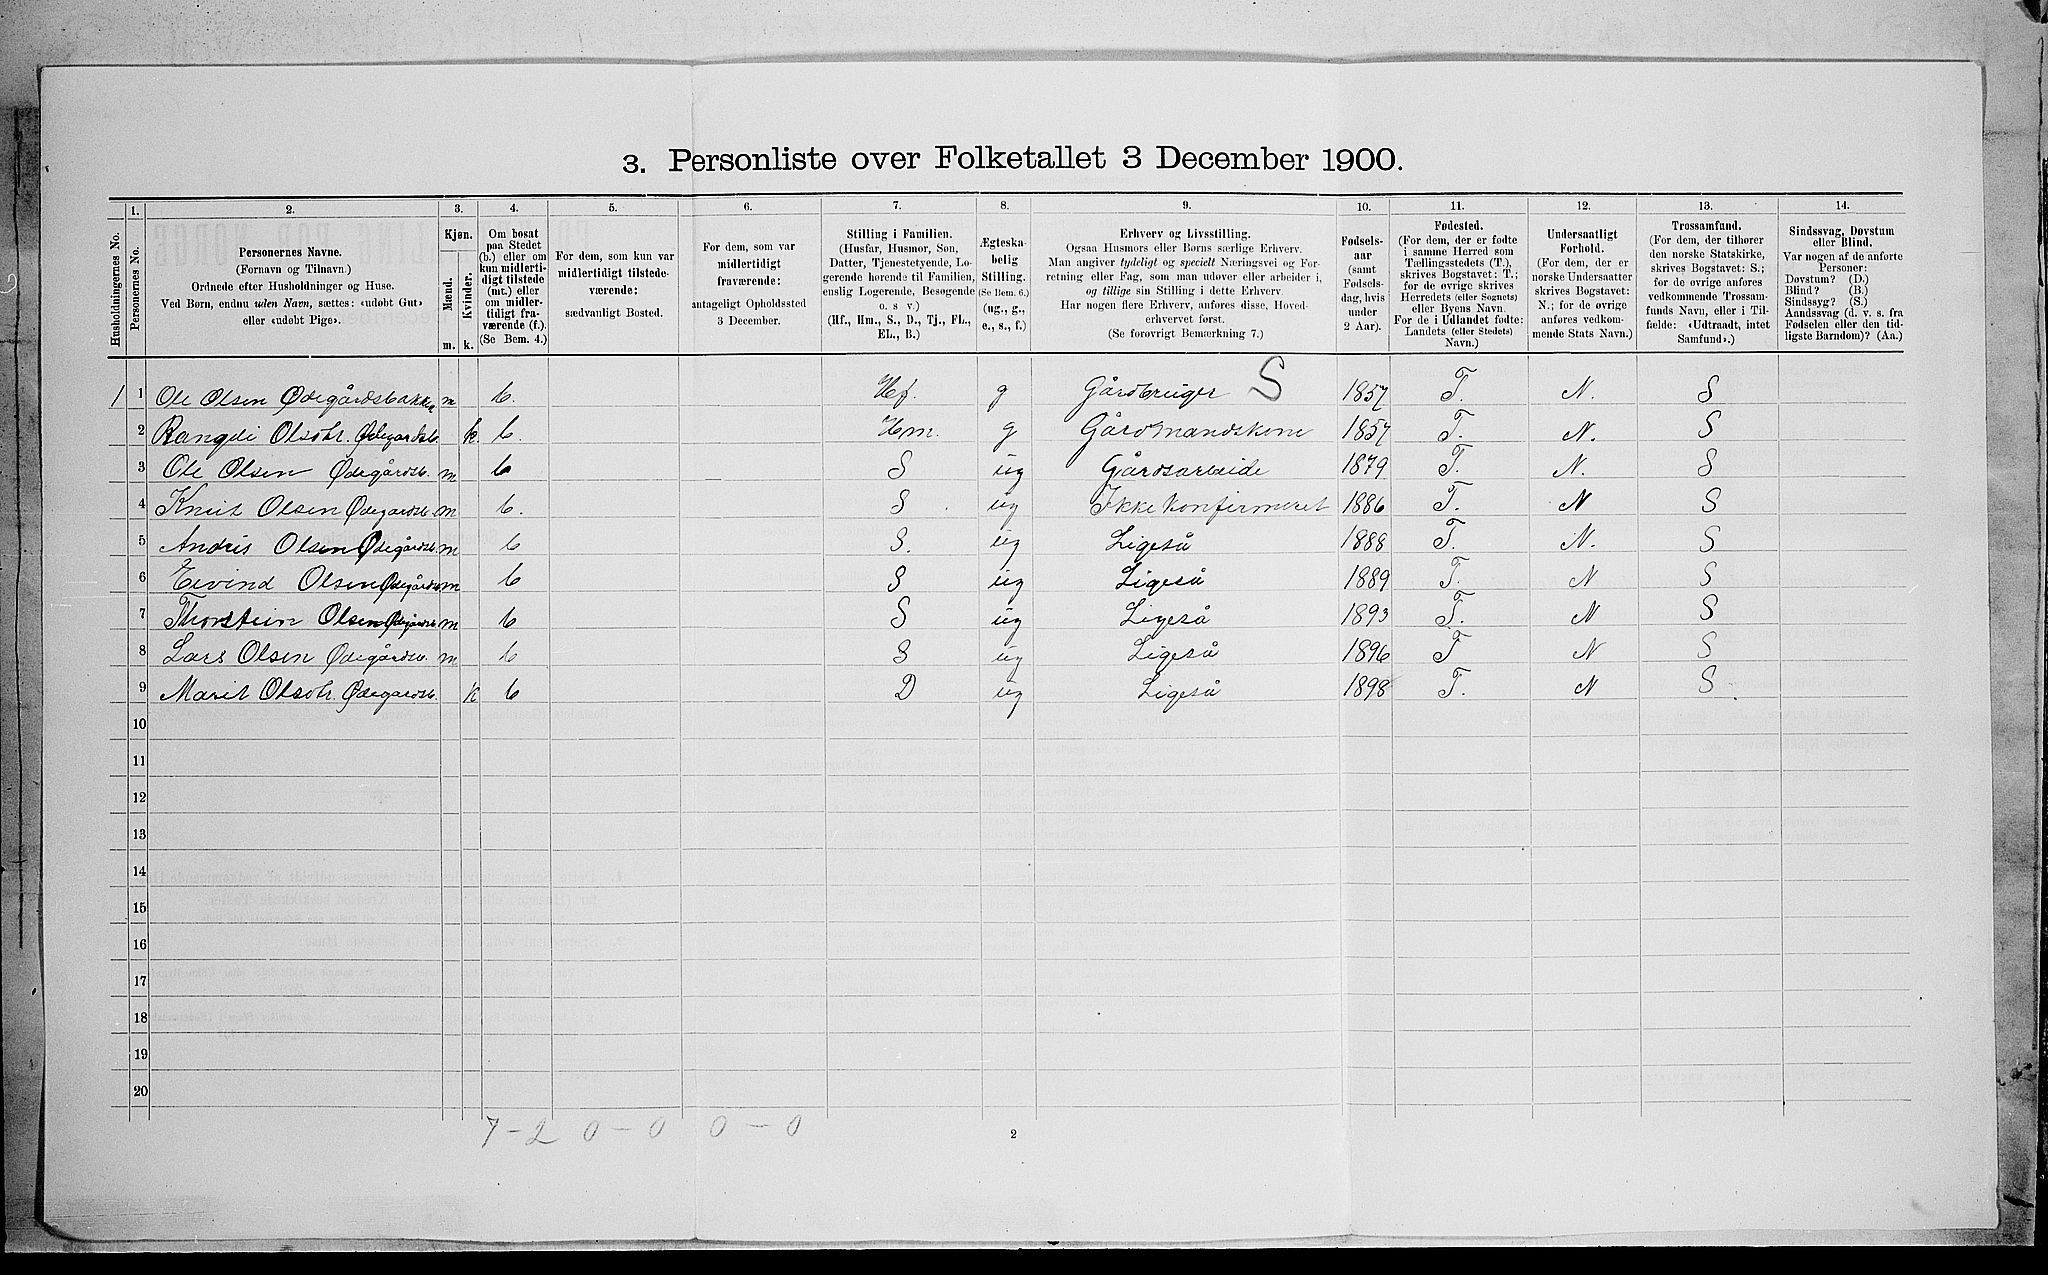 3. Personliste over Folketallet 3 December 1900.
1. 2. 3. 4. 5. 6. 7. 8. 9. 10. 11. 12. 13. 14.
Husholdningernes No.
Personernes No.
Personernes Navne.
(Fornavn og Tilnavn.)
Ordnede efter Husholdninger og Huse.
Ved Børn, endnu uden Navn, sættes: «udøbt Gut»
eller «udøbt Pige».
Kjøn.
Mænd.
Kvinder.
m. k.
Om bosat
paa Stedet
(b.) eller om
kun midlerti-
digt tilstede
(mt.) eller
om midler-
tidigt fra-
værende (f.).
(Se Bem. 4.)
For dem, som kun var
midlertidigt tilstede-
værende:
sædvanligt Bosted.
For dem, som var
midlertidigt
fraværende:
antageligt Opholdssted
3 December.
Stilling i Familien.
(Husfar, Husmor, Søn,
Datter, Tjenestetyende, Lo-
gerende hørende til Familien,
enslig Logerende, Besøgende
o. s v.)
(Hf., Hm., S., D., Tj., FL.,
EL., B.)
Ægteska-
belig
Stilling.
(Se Bem. 6.)
(ug., g.,
e., s., f.)
Erhverv og Livsstilling.
Ogsaa Husmors eller Børns særlige Erhverv.
Man angiver tydeligt og specielt Næringsvei og For-
retning eller Fag, som man udøver eller arbeider i,
og tillige sin Stilling i dette Erhverv.
Har nogen flere Erhverv, anføres disse, Hoved-
erhvervet først.
(Se forøvrigt Bemærkning 7.)
Fødsels-
aar
(samt
Fødsels-
dag, hvis
under
2 Aar).
Fødested.
(For dem, der er fødte
i samme Herred som
Tællingsstedets (T.),
skrives Bogstavet: T.;
for de øvrige skrives
Herredets (eller Sognets)
eller Byens Navn.
For de i Udlandet fødte:
Landets (eller Stedets)
Navn.)
Undersaatligt
Forhold.
(For dem, der er
norske Undersaatter
skrives Bogstavet:
N.; for de øvrige
anføres vedkom-
mende Stats Navn.)
Trossamfund.
(For dem, der tilhører
den norske Statskirke,
skrives Bogstavet: S.;
for de øvrige anføres
vedkommende Trossam-
funds Navn, eller i Til-
fælde: «Udtraadt, intet
Samfund».)
Sindssvag, Døvstum
eller Blind.
Var nogen af de anførte
Personer:
Døvstum? (D.)
Blind? (B.)
Sindssyg? (S.)
Aandssvag (d. v. s. fra
Fødselen eller den tid-
ligste Barndom)? (Aa.)
1 1 Ole Olsen Ødegårdsbakken m b. Hf. g Gårdbruger S 1857 T. N. S
2 Rangdi Olsdtr. Ødegardsb. k b. Hm. g Gårdmandskone 1857 T. N. S
3 Ole Olsen Ødegårdsb. m b S ug Gårdsarbeide 1879 T. N. S
4 Knut Olsen Ødegardsb. m b. S ug Ikke konfirmeret 1886 T. N S
5 Andris Olsen Ødegårdsb. m b S. ug Ligeså 1888 T. N. S
6 Eivind Olsen Ødegårdsb m b S ug Ligeså 1889 T. N S
7 Thorstein Olsen Ødegårdsb m b S ug Ligeså 1893 T. N S
8 Lars Olsen Ødegårdsb. m b S ug Ligeså 1896 T N S
9 Marit Olsdtr. Ødegardsb. k b D ug Ligeså 1898 T. N S
10
11
12
13
14
15
16
17
18
19
20
7 - 2 0 - 0 0 - 0
2